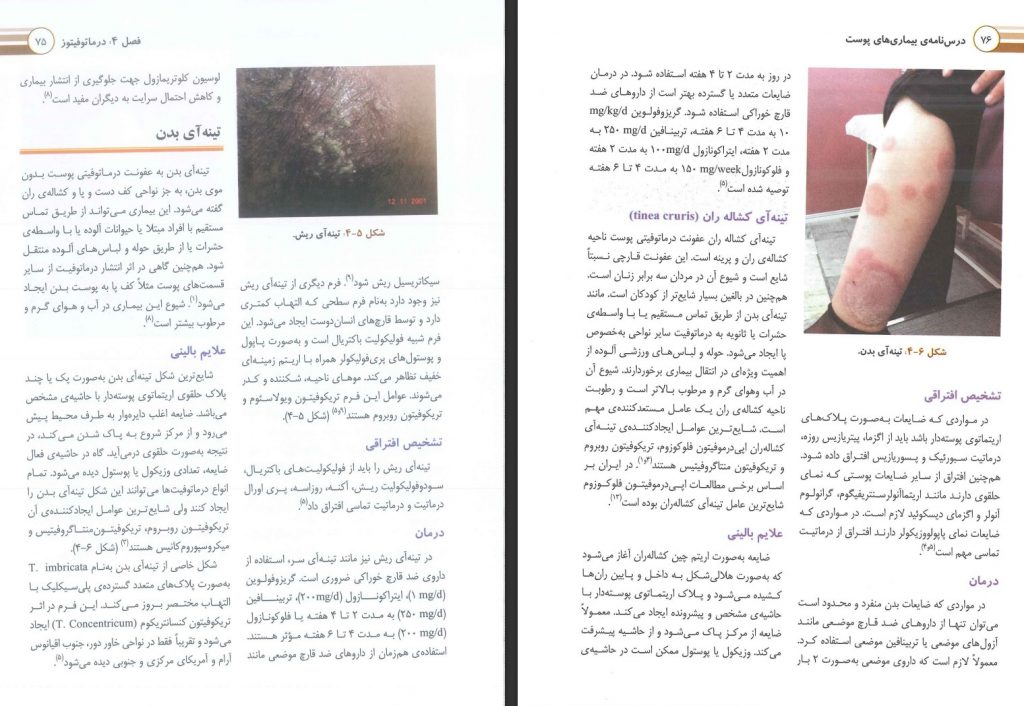 فصل ۴: درماتوفیتوز
۷۵
12 11 2001
شکل ۵-۴: تینه‌آی ریش.
سیکاتریسیل ریش شود(۹). فرم دیگری از تینه‌آی ریش
نیز وجود دارد به‌نام فرم سطحی که التهاب کمتری
دارد و توسط قارچ‌های انسان‌دوست ایجاد می‌شود. این
فرم شبیه فولیکولیت باکتریال است و به‌صورت پاپول
و پوستول‌های پری‌فولیکولر همراه با اریتم زمینه‌ای
خفیف تظاهر می‌کند. موهای ناحیه، شکننده و کدر
می‌شوند. عوامل این فرم تریکوفیتون ویولاسئوم و
تریکوفیتون روبروم هستند(۹و۵) (شکل ۵-۴).
تشخیص افتراقی
تینه‌آی ریش را باید از فولیکولیت‌های باکتریال،
سودوفولیکولیت ریش، آکنه، روزاسه، پری اورال
درماتیت و درماتیت تماسی افتراق داد(۵).
درمان
در تینه‌آی ریش نیز مانند تینه‌آی سر، استفاده از
داروی ضد قارچ خوراکی ضروری است. گریزوفولوین
(۱ mg/d)، ایتراکونازول (۲۰۰mg/d)، تربینافین
(۲۵۰ mg/d) به مدت ۲ تا ۴ هفته یا فلوکونازول
(۲۰۰ mg/d) به مدت ۴ تا ۶ هفته مؤثر هستند.
استفاده‌ی هم‌زمان از داروهای ضد قارچ موضعی مانند
لوسیون کلوتریمازول جهت جلوگیری از انتشار بیماری
و کاهش احتمال سرایت به دیگران مفید است(۸).
تینه‌آی بدن
تینه‌آی بدن به عفونت درماتوفیتی پوست بدون
موی بدن، به جز نواحی کف دست و پا و کشاله‌ی ران
گفته می‌شود. این بیماری می‌تواند از طریق تماس
مستقیم با افراد مبتلا یا حیوانات آلوده یا با واسطه‌ی
حشرات یا از طریق حوله و لباس‌های آلوده منتقل
شود. هم‌چنین گاهی در اثر انتشار درماتوفیت از سایر
قسمت‌های پوست مثلاً کف پا به پوست بدن ایجاد
می‌شود(۱). شیوع این بیماری در آب و هوای گرم و
مرطوب بیشتر است(۸).
علایم بالینی
شایع‌ترین شکل تینه‌آی بدن به‌صورت یک یا چند
پلاک حلقوی اریتماتوی پوسته‌دار با حاشیه‌ی مشخص
می‌باشد. ضایعه اغلب دایره‌وار به طرف محیط پیش
می‌رود و از مرکز شروع به پاک شدن می‌کند، در
نتیجه به‌صورت حلقوی درمی‌آید. گاه در حاشیه‌ی فعال
ضایعه، تعدادی وزیکول یا پوستول دیده می‌شود. تمام
انواع درماتوفیت‌ها می‌توانند این شکل تینه‌آی بدن را
ایجاد کنند ولی شایع‌ترین عوامل ایجادکننده‌ی آن
تریکوفیتون روبروم، تریکوفیتون‌منتاگروفیتیس و
میکروسپوروم‌کانیس هستند(۳) (شکل ۶-۴).
شکل خاصی از تینه‌آی بدن به‌نام T. imbricata
به‌صورت پلاک‌های متعدد گسترده‌ی پلی‌سیکلیک با
التهاب مختصر بروز می‌کند. این فرم در اثر
تریکوفیتون کنسانتریکوم (T. Concentricum) ایجاد
می‌شود و تقریباً فقط در نواحی خاور دور، جنوب اقیانوس
آرام و آمریکای مرکزی و جنوبی دیده می‌شود(۵).
۷۶
درس‌نامه‌ی بیماری‌های پوست
شکل ۶-۴: تینه‌آی بدن.
تشخیص افتراقی
در مواردی که ضایعات به‌صورت پلاک‌های
اریتماتوی پوسته‌دار باشد باید از اگزما، پیتریازیس روزه،
درماتیت سبورئیک و پسوریازیس افتراق داده شود.
هم‌چنین افتراق از سایر ضایعات پوستی که نمای
حلقوی دارند مانند اریتماآنولرسنتریفیگوم، گرانولوم
آنولر و اگزمای دیسکوئید لازم است. در مواردی که
ضایعات نمای پاپولووزیکولر دارند افتراق از درماتیت
تماسی مهم است(۵و۴).
درمان
در مواردی که ضایعات بدن منفرد و محدود است
می‌توان تنها از داروهای ضد قارچ موضعی مانند
آزول‌های موضعی یا تربینافین موضعی استفاده کرد.
معمولاً لازم است که داروی موضعی به‌صورت ۲ بار
در روز به مدت ۲ تا ۴ هفته استفاده شود. در درمان
ضایعات متعدد یا گسترده بهتر است از داروهای ضد
قارچ خوراکی استفاده شود. گریزوفولوین mg/kg/d
۱۰ به مدت ۴ تا ۶ هفته، تربینافین ۲۵۰ mg/d به
مدت ۲ هفته، ایتراکونازول ۱۰۰mg/d به مدت ۲ هفته
و فلوکونازول۱۵۰ mg/week به مدت ۴ تا ۶ هفته
توصیه شده است(۵).
تینه‌آی کشاله ران (tinea cruris)
تینه‌آی کشاله ران عفونت درماتوفیتی پوست ناحیه
کشاله‌ی ران و پرینه است. این عفونت قارچی نسبتاً
شایع است و شیوع آن در مردان سه برابر زنان است.
هم‌چنین در بالغین بسیار شایع‌تر از کودکان است. مانند
تینه‌آی بدن از طریق تماس مستقیم یا با واسطه‌ی
حشرات یا ثانویه به درماتوفیت سایر نواحی به‌خصوص
پا ایجاد می‌شود. حوله و لباس‌های ورزشی آلوده از
اهمیت ویژه‌ای در انتقال بیماری برخوردارند. شیوع آن
در آب وهوای گرم و مرطوب بالاتر است و رطوبت
ناحیه کشاله‌ی ران یک عامل مستعدکننده‌ی مهم
است. شایع‌ترین عوامل ایجادکننده‌ی تینه‌آی
کشاله‌ران اپی‌درموفیتون فلوکوزوم، تریکوفیتون روبروم
و تریکوفیتون منتاگروفیتیس هستند(۳و۱). در ایران بر
اساس برخی مطالعات اپی‌درموفیتون فلوکوزوم
شایع‌ترین عامل تینه‌آی کشاله‌ران بوده است(۱۲).
علایم بالینی
ضایعه به‌صورت اریتم چین کشاله‌ران آغاز می‌شود
که به‌صورت هلالی‌شکل به داخل و پایین ران‌ها
کشیده می‌شود و پلاک اریتماتوی پوسته‌دار با
حاشیه‌ی مشخص و پیشرونده ایجاد می‌کند. معمولاً
ضایعه از مرکز پاک می‌شود و از حاشیه پیشرفت
می‌کند. وزیکول یا پوستول ممکن است در حاشیه‌ی